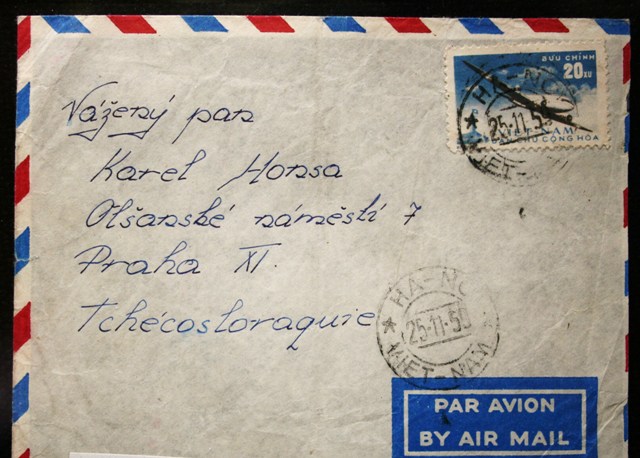 BƯU CHÍNH
20 XU
HÀ-NỘ
25.11.5
VIỆT-NAM
DÂN CHỦ CỘNG HÒA
VIET-
Vážený pan
Karel Honsa
Olšanské náměstí 7
Praha XI.
Tchécosloraquie
HÀ-NỘ
25-11-59
VIET-NAM
PAR AVION
BY AIR MAIL